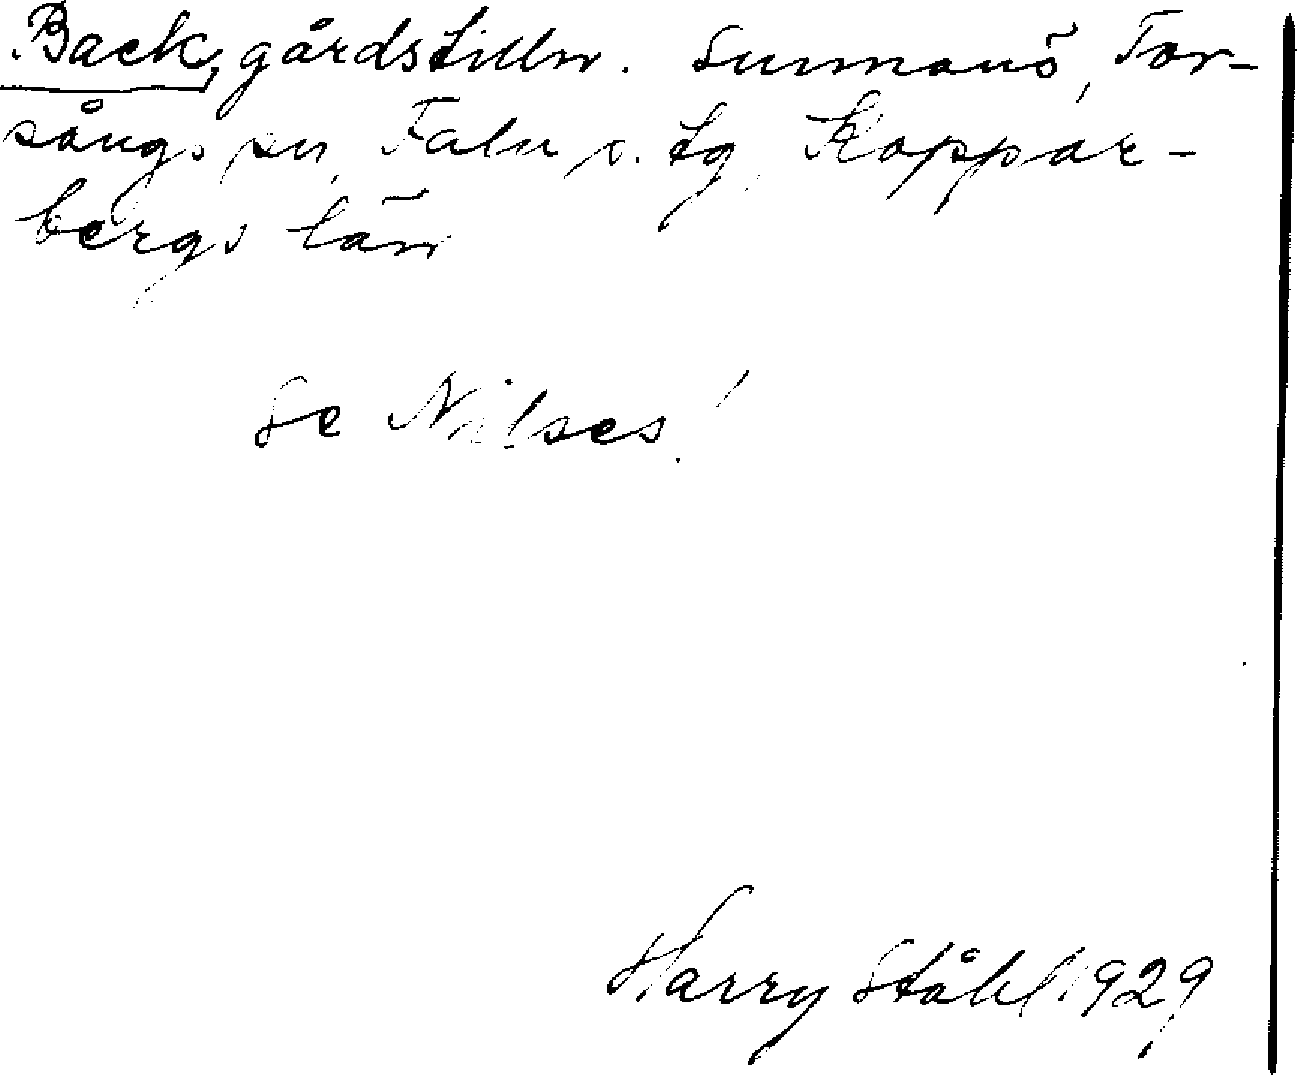 Back, gårdstilln. Sunnanö, Tor-
sångs sn, Falu s. tg, Koppar-
bergs län
Se Nilses!
Harry Ståhl 1929